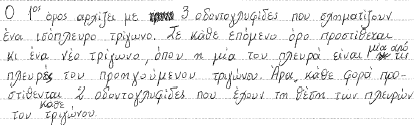 Ο 1ος όρος αρχίζει με 3 οδοντογλυφίδες που σχηματίζουν
ένα ισόπλευρο τρίγωνο. Σε κάθε επόμενο όρο προστίθεται
κι ένα νέο τρίγωνο, όπου η μία του πλευρά είναι μία από τις
πλευρές του προηγούμενου τριγώνου. Άρα κάθε φορά προ-
στίθενται 2 οδοντογλυφίδες που έχουν τη θέση των πλευρών
του κάθε τριγώνου.